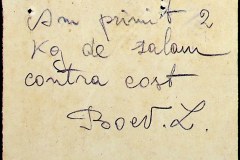 Am primit 2
Kg de salam
contra cost
Boev. L.